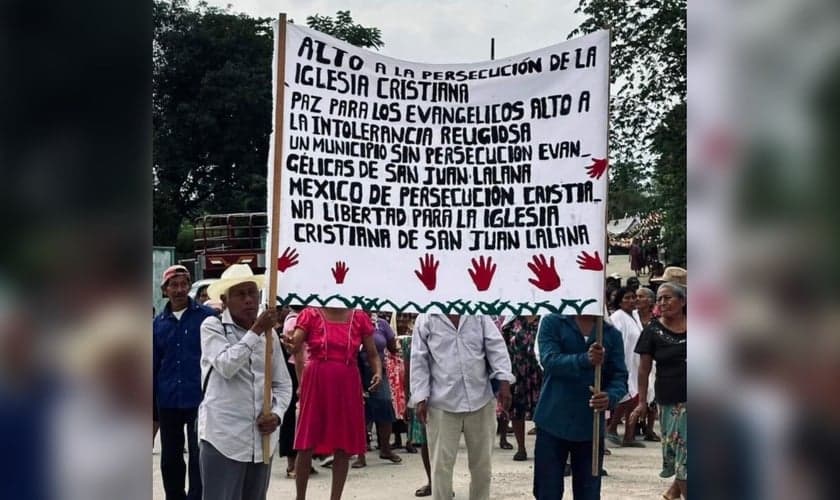 ALTO A LA PERSECUCIÓN DE LA
IGLESIA CRISTIANA
PAZ PARA LOS EVANGELICOS ALTO A
LA INTOLERANCIA RELIGIOSA
UN MUNICIPIO SIN PERSECUCION EVAN_
GÉLICAS DE SAN JUAN LALANA
MEXICO DE PERSECUCION CRISTIA_
NA LIBERTAD PARA LA IGLESIA
CRISTIANA DE SAN JUAN LALANA